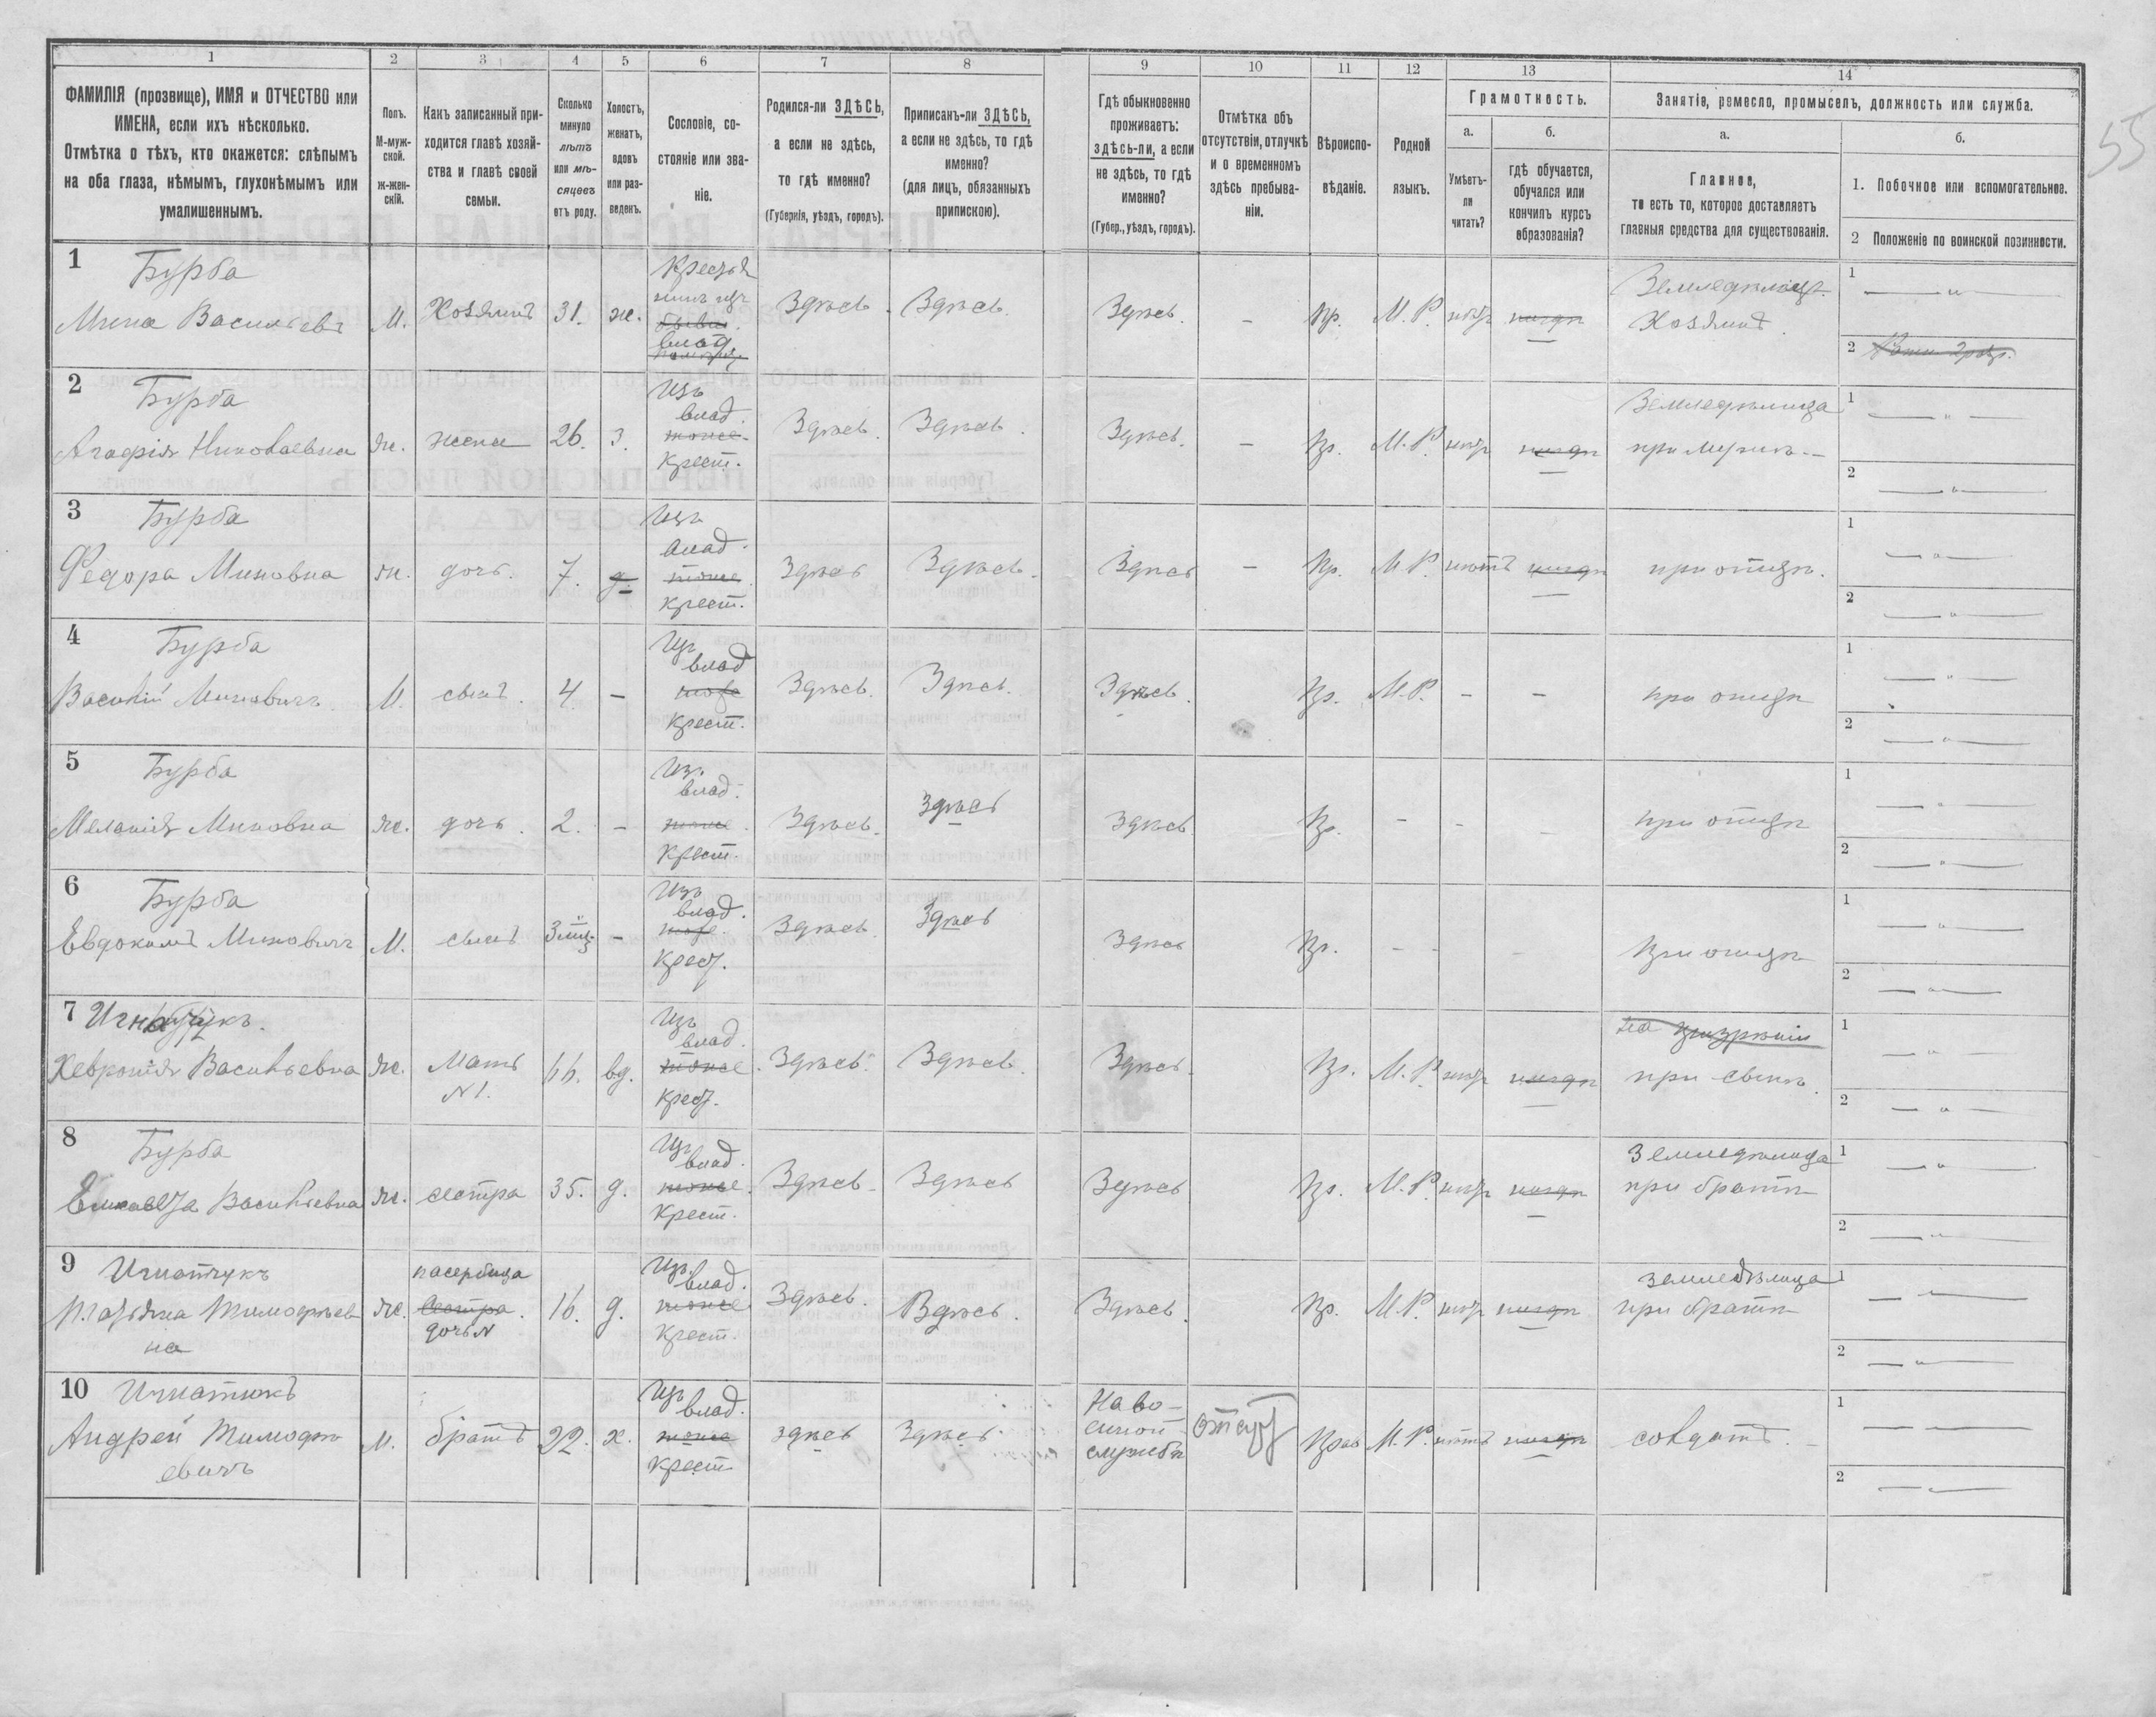 55
1
2
3
4
5
6
7
8
9
10
11
12
13
14
ФАМИЛІЯ (прозвище), ИМЯ и ОТЧЕСТВО или
ИМЕНА, если ихъ нѣсколько.
Отмѣтка о тѣхъ, кто окажется: слѣпымъ
на оба глаза, нѣмымъ, глухонѣмымъ или
умалишеннымъ.
Полъ.
М-муж-
ской.
ж-жен-
скій.
Какъ записанный при-
ходится главѣ хозяй-
ства и главѣ своей
семьи.
Сколько
минуло
лѣтъ
или мѣ-
сяцевъ
отъ роду.
Холостъ,
женатъ,
вдовъ
или раз-
веденъ.
Сословіе, со-
стояніе или зва-
ніе.
Родился-ли ЗДѢСЬ,
а если не здѣсь,
то гдѣ именно?
(Губернія, уѣздъ, городъ).
Приписанъ-ли ЗДѢСЬ,
а если не здѣсь, то гдѣ
именно?
(для лицъ, обязанныхъ
припискою).
Гдѣ обыкновенно
проживаетъ:
здѣсь-ли, а если
не здѣсь, то гдѣ
именно?
(Губер., уѣздъ, городъ).
Отмѣтка объ
отсутствіи, отлучкѣ
и о временномъ
здѣсь пребыва-
ніи.
Вѣроиспо-
вѣданіе.
Родной
языкъ.
Грамотность.
а.
б.
Умѣетъ-
ли
читать?
гдѣ обучается,
обучался или
кончилъ курсъ
образованія?
Занятіе, ремесло, промыселъ, должность или служба.
а.
б.
Главное,
то есть то, которое доставляетъ
главныя средства для существованія.
1. Побочное или вспомогательное.
2 Положеніе по воинской повинности.
1 Бурба
Мина Васильевъ М. Хозяинъ 31. ж. Здѣсь. Здѣсь. Здѣсь. – Пр. М. Р. Земледѣлецъ. Хозяинъ.
1
2
2 Бурба
Агафія Николаевна ж. жена 26. з. Изъ влад. тоже крест. Здѣсь. Здѣсь. Здѣсь. – Пр. М. Р. Земледѣлица при мужѣ –
1
2
3 Бурба
Федора Миновна ж. дочь. 7. д. Изъ влад. тоже крест. Здѣсь Здѣсь. Здѣсь – Пр. М. Р. нѣтъ нигдѣ при отцѣ.
1
2
4 Бурба
Василій Миновичъ М. сынъ. 4 – Изъ влад тоже крест. Здѣсь. Здѣсь. Здѣсь. Пр. М. Р. – – при отцѣ
1
2
5 Бурба
Меланія Миновна ж. дочь. 2. – Из. влад. тоже крест. Здѣсь. Здѣсь Здѣсь Пр. – – – при отцѣ
1
2
6 Бурба
Евдокимъ Миновичъ М. сынъ – Изъ влад. тоже крест. Здѣсь. Здѣсь Здѣсь Пр. – – – при отцѣ
1
2
7 Игнатчукъ.
Хевронія Васильевна ж. Мать N 1. 66. вд. Изъ влад. тоже крест. Здѣсь. Здѣсь. Здѣсь. Пр. М. Р. нигдѣ при сынѣ.
1
2
8 Бурба
Васильевна ж. сестра 35. д. Изъ влад. тоже крест. Здѣсь Здѣсь Здѣсь Пр. М. Р. нигдѣ Земледѣлица при братѣ
1
2
9 Игнатчукъ
Татьяна Тимофѣев-
на ж. пасербица сестра. дочь N 16. д. Изъ влад. тоже крест. Здѣсь. Здѣсь. Здѣсь. Пр. М. Р. нигдѣ земледѣлица при братѣ
1
2
10 Игнатюкъ
Андрей Тимофѣ-
евичъ М. братъ 22. х. Изъ влад. тоже крест здѣсь Здѣсь. На во-
енной
службѣ отсут Прав М. Р. нѣтъ нигдѣ солдатъ.
1
2